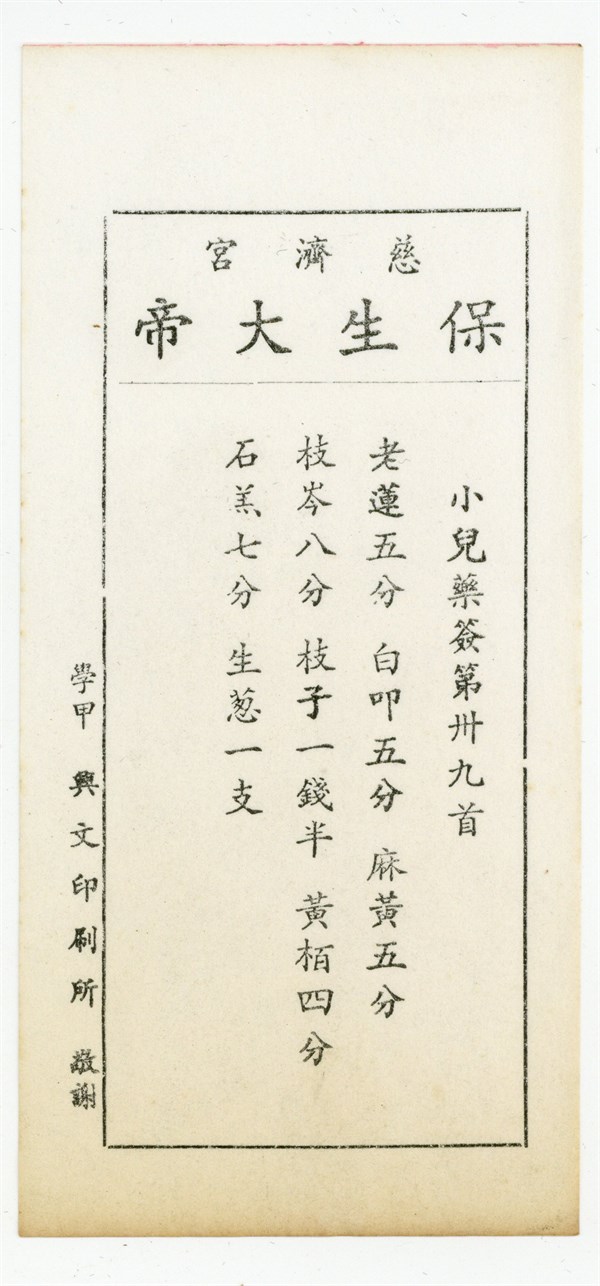 慈濟宮
保生大帝
小兒藥簽第卅九首
老蓮五分 白叩五分 麻黃五分
枝岑八分 枝子一錢半 黃栢四分
石羔七分 生葱一支
學甲 興文印刷所 敬謝